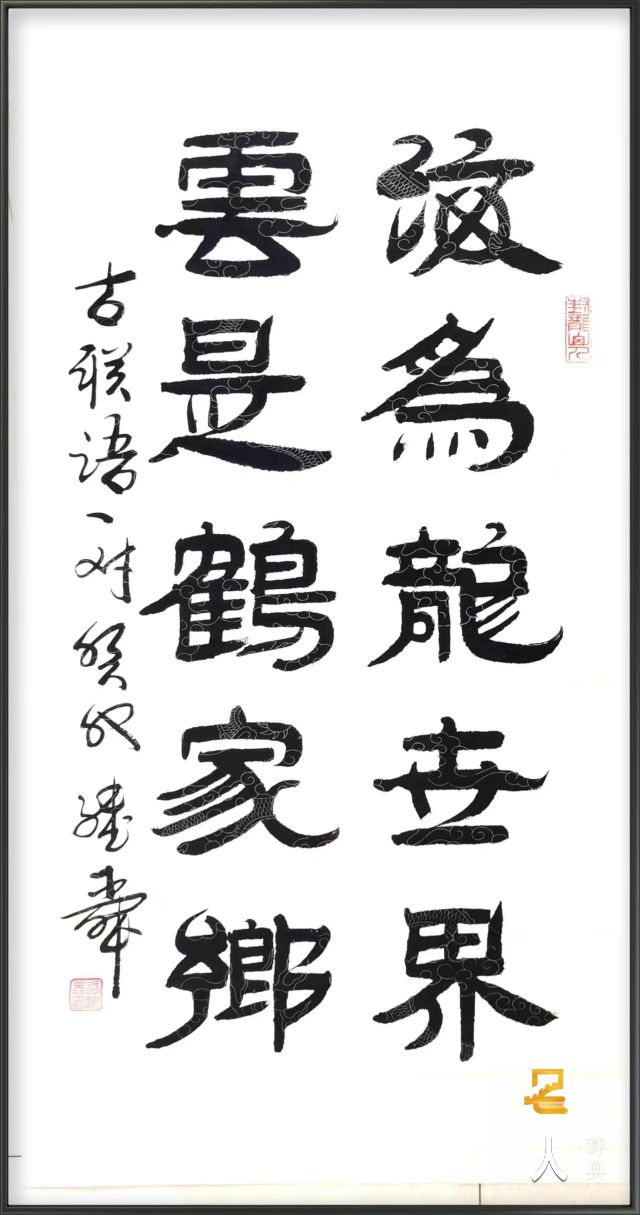 波為龍世界
雲是鶴家鄉
古联语一对癸
人
辞典